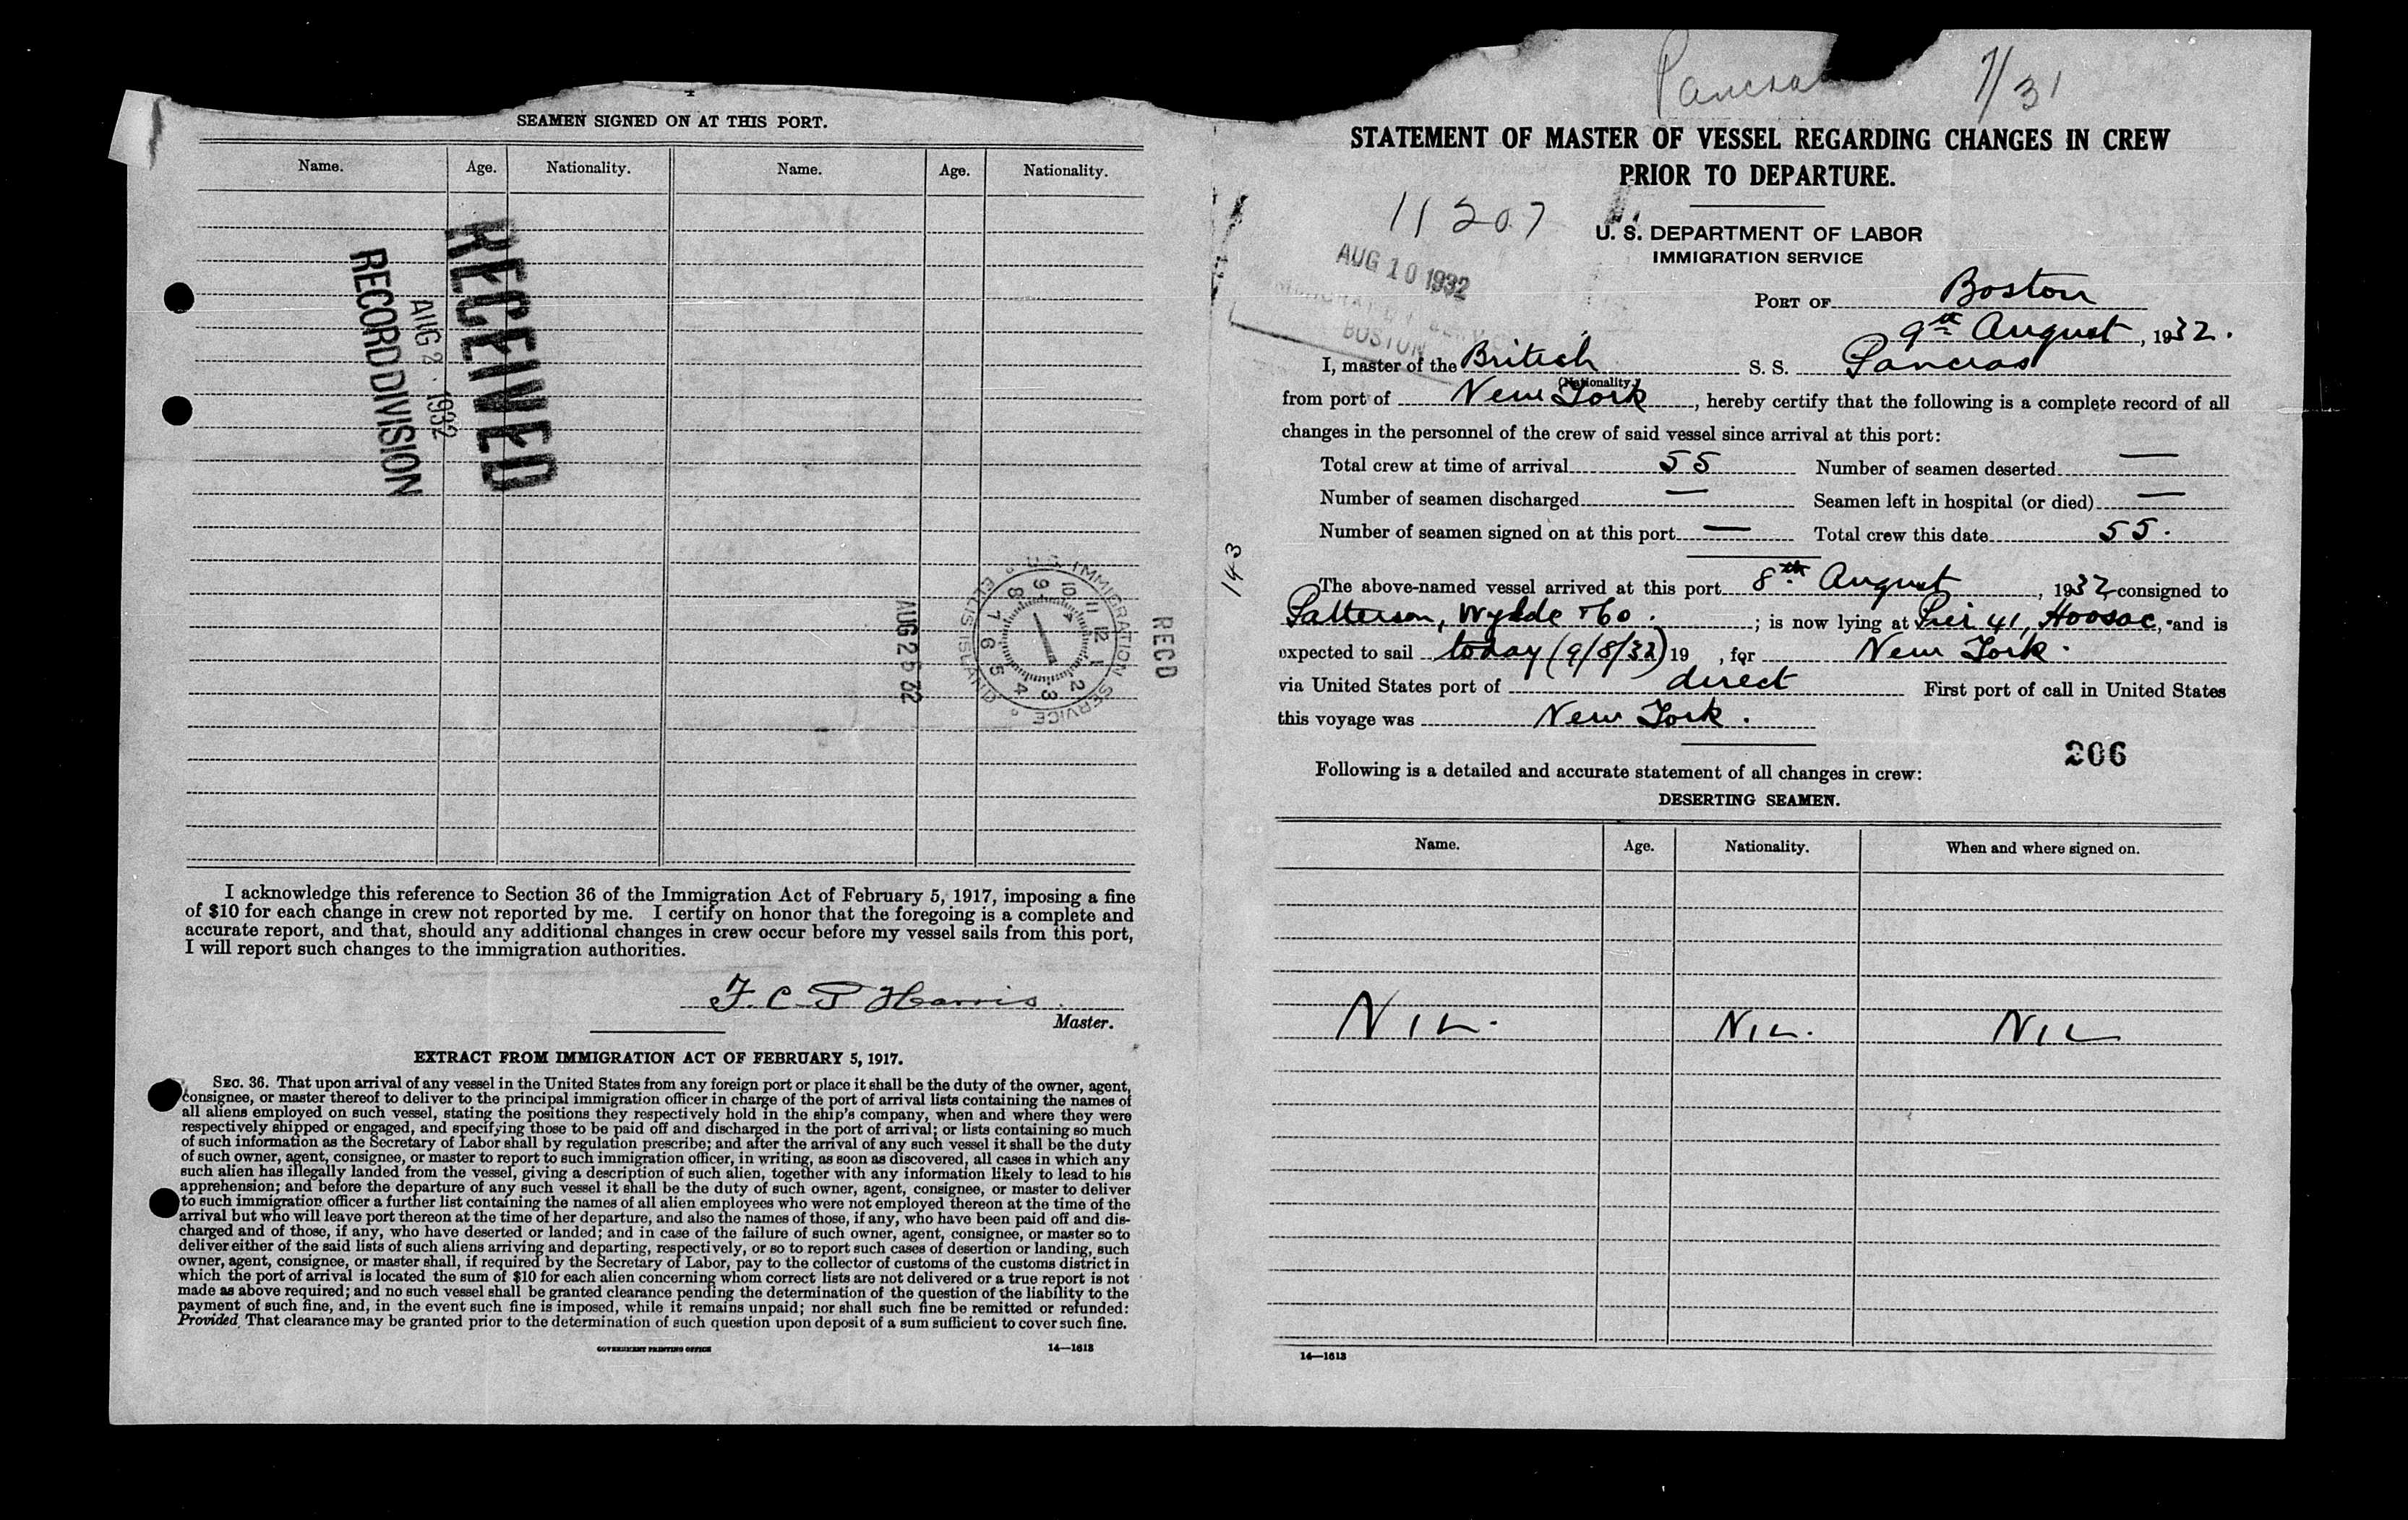 SEAMEN SIGNED ON AT THIS PORT.
Name. Age. Nationality. Name. Age. Nationality.
RECEIVED
AUG 2 1932
RECORD DIVISION
RECD
U.S. IMMIGRATION SERVICE
ELLIS ISLAND
12 1 2 3 4 5 6 7 8 9 10 11
AUG 25 32
I acknowledge this reference to Section 36 of the Immigration Act of February 5, 1917, imposing a fine
of $10 for each change in crew not reported by me. I certify on honor that the foregoing is a complete and
accurate report, and that, should any additional changes in crew occur before my vessel sails from this port,
I will report such changes to the immigration authorities.
F. C. P Harris.
Master.
EXTRACT FROM IMMIGRATION ACT OF FEBRUARY 5, 1917.
SEC. 36. That upon arrival of any vessel in the United States from any foreign port or place it shall be the duty of the owner, agent,
consignee, or master thereof to deliver to the principal immigration officer in charge of the port of arrival lists containing the names of
all aliens employed on such vessel, stating the positions they respectively hold in the ship's company, when and where they were
respectively shipped or engaged, and specifying those to be paid off and discharged in the port of arrival; or lists containing so much
of such information as the Secretary of Labor shall by regulation prescribe; and after the arrival of any such vessel it shall be the duty
of such owner, agent, consignee, or master to report to such immigration officer, in writing, as soon as discovered, all cases in which any
such alien has illegally landed from the vessel, giving a description of such alien, together with any information likely to lead to his
apprehension; and before the departure of any such vessel it shall be the duty of such owner, agent, consignee, or master to deliver
to such immigration officer a further list containing the names of all alien employees who were not employed thereon at the time of the
arrival but who will leave port thereon at the time of her departure, and also the names of those, if any, who have been paid off and dis-
charged and of those, if any, who have deserted or landed; and in case of the failure of such owner, agent, consignee, or master so to
deliver either of the said lists of such aliens arriving and departing, respectively, or so to report such cases of desertion or landing, such
owner, agent, consignee, or master shall, if required by the Secretary of Labor, pay to the collector of customs of the customs district in
which the port of arrival is located the sum of $10 for each alien concerning whom correct lists are not delivered or a true report is not
made as above required; and no such vessel shall be granted clearance pending the determination of the question of the liability to the
payment of such fine, and, in the event such fine is imposed, while it remains unpaid; nor shall such fine be remitted or refunded:
Provided, That clearance may be granted prior to the determination of such question upon deposit of a sum sufficient to cover such fine.
GOVERNMENT PRINTING OFFICE 14—1613
Pancra 7/31
STATEMENT OF MASTER OF VESSEL REGARDING CHANGES IN CREW
PRIOR TO DEPARTURE.
11207
U. S. DEPARTMENT OF LABOR
IMMIGRATION SERVICE
AUG 10 1932
BOSTON
PORT OF Boston
9th August, 1932.
I, master of the British S. S. Pancras
(Nationality.)
from port of New York, hereby certify that the following is a complete record of all
changes in the personnel of the crew of said vessel since arrival at this port:
Total crew at time of arrival 55 Number of seamen deserted —
Number of seamen discharged — Seamen left in hospital (or died) —
Number of seamen signed on at this port — Total crew this date 55.
143
The above-named vessel arrived at this port 8th August, 1932, consigned to
Patterson, Wylde & Co.; is now lying at Pier 41, Hoosac, and is
expected to sail today (9/8/32) 19 , for New York.
via United States port of direct First port of call in United States
this voyage was New York.
206
Following is a detailed and accurate statement of all changes in crew:
DESERTING SEAMEN.
Name. Age. Nationality. When and where signed on.
NIL. NIL. NIL
14—1613